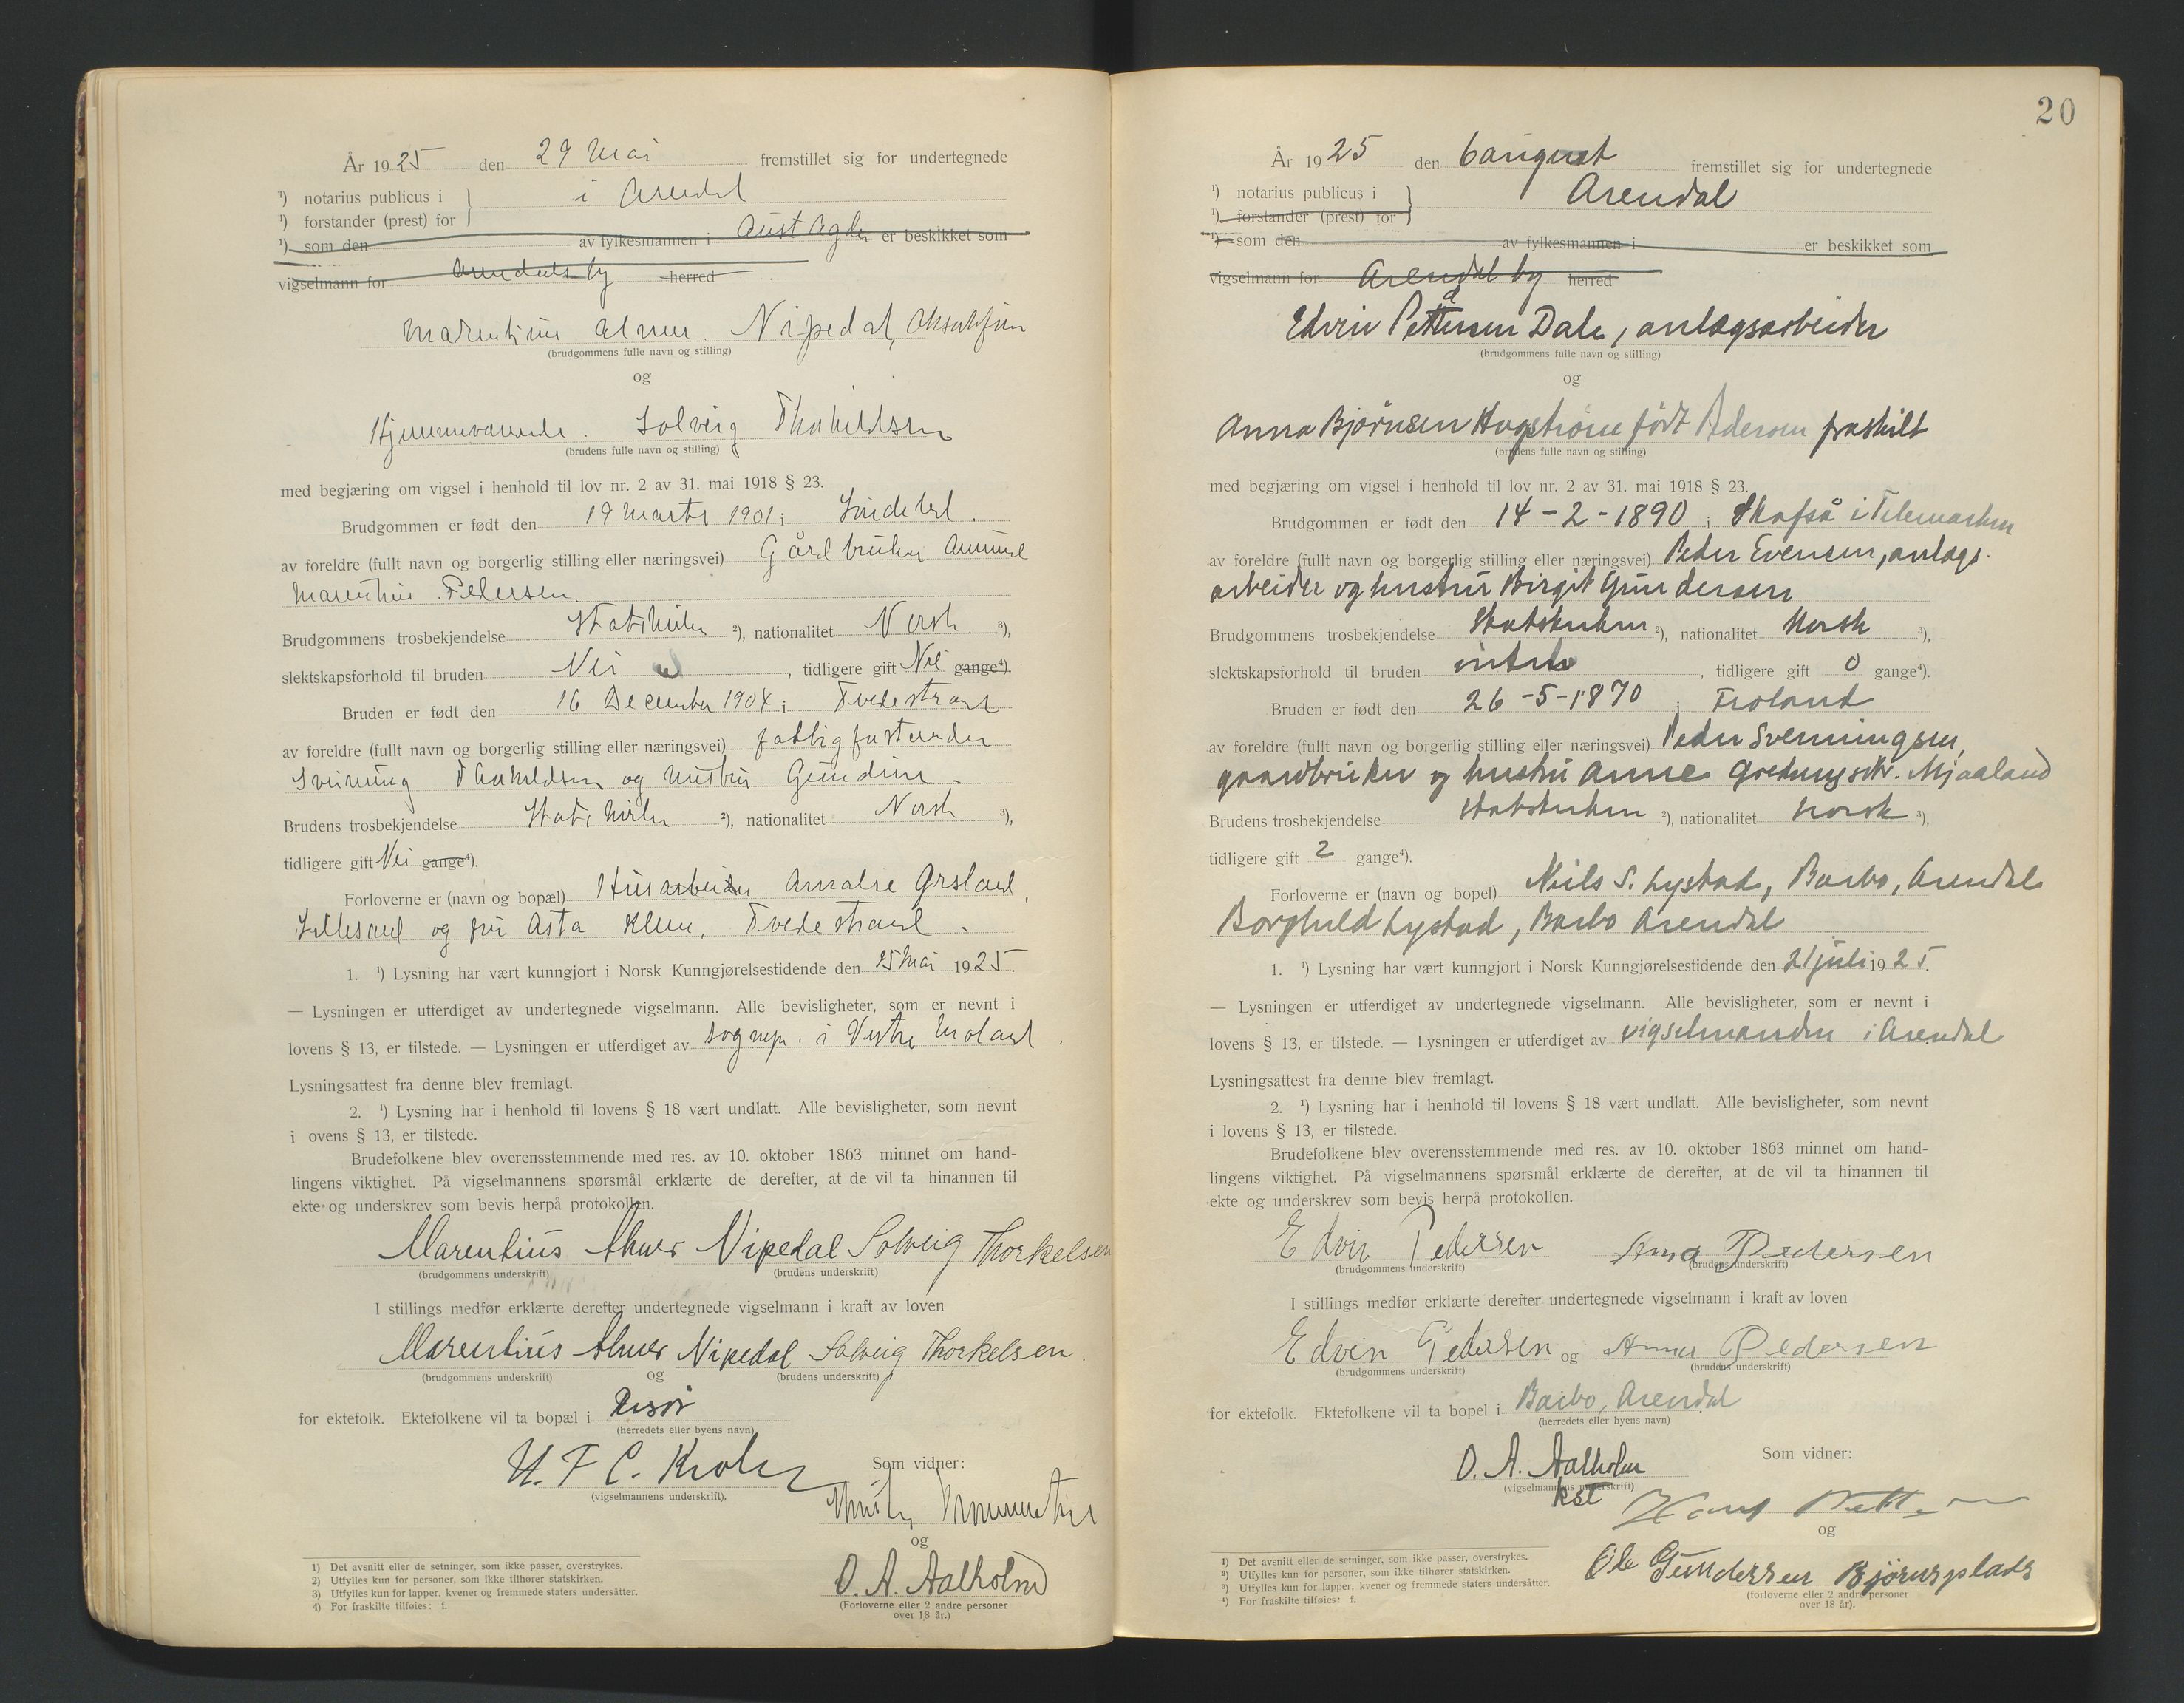 År 1925 den 29 Mai fremstillet sig for undertegnede
¹) notarius publicus i } i Arendal
¹) forstander (prest) for
¹) som den av fylkesmannen i Aust Agder er beskikket som
vigselmann for Arendals by herred
Marentius Almer Nipedal,
(brudgommens fulle navn og stilling)
og
Hjemmeværende. Solveig Thorkildsen
(brudens fulle navn og stilling)
med begjæring om vigsel i henhold til lov nr. 2 av 31. mai 1918 § 23.
Brudgommen er født den 19 Marts 1901 i
av foreldre (fullt navn og borgerlig stilling eller næringsvei) Gårdbruker
Marentius Pedersen.
Brudgommens trosbekjendelse Statskirken ²), nationalitet Norsk ³),
slektskapsforhold til bruden Nei, tidligere gift Nei gange⁴).
Bruden er født den 16 December 1904 i Tvedestrand
av foreldre (fullt navn og borgerlig stilling eller næringsvei) fattigforstander
Svenning Thorkildsen og hustru Gundine
Brudens trosbekjendelse Statskirken ²), nationalitet Norsk ³),
tidligere gift Nei gange⁴).
Forloverne er (navn og bopæl) Husarbeider Amalie Grosland,
Lillesand og fru Asta Klem, Tvedestrand.
1. ¹) Lysning har vært kunngjort i Norsk Kunngjørelsestidende den 15 Mai 1925.
— Lysningen er utferdiget av undertegnede vigselmann. Alle bevisligheter, som er nevnt i
lovens § 13, er tilstede. — Lysningen er utferdiget av sognepr. i Vestre Moland.
Lysningsattest fra denne blev fremlagt.
2. ¹) Lysning har i henhold til lovens § 18 vært undlatt. Alle bevisligheter, som nevnt
i ovens § 13, er tilstede.
Brudefolkene blev overensstemmende med res. av 10. oktober 1863 minnet om hand-
lingens viktighet. På vigselmannens spørsmål erklærte de derefter, at de vil ta hinannen til
ekte og underskrev som bevis herpå protokollen.
Marentius Almer Nipedal Solveig Thorkelsen
(brudgommens underskrift) (brudens underskrift)
I stillings medfør erklærte derefter undertegnede vigselmann i kraft av loven
Marentius Almer Nipedal Solveig Thorkelsen.
(brudgommens underskrift) og (brudens underskrift)
for ektefolk. Ektefolkene vil ta bopæl i Risør
(herredets eller byens navn)
H. F. C. Krohn
(vigselmannens underskrift).
Som vidner:
og
O. A. Aalholm
(Forloverne eller 2 andre personer
over 18 år.)
1) Det avsnitt eller de setninger, som ikke passer, overstrykes.
2) Utfylles kun for personer, som ikke tilhører statskirken.
3) Utfylles kun for lapper, kvener og fremmede staters undersåtter.
4) For fraskilte tilføies: f.
20
År 1925 den 6 august fremstillet sig for undertegnede
¹) notarius publicus i } Arendal
¹) forstander (prest) for
¹) som den av fylkesmannen i er beskikket som
vigselmann for Arendal by herred
Edvin Pettersen Dale, anlægsarbeider
(brudgommens fulle navn og stilling)
og
Anna Bjørnsen Hagstrøm født Pedersen fraskilt
(brudens fulle navn og stilling)
med begjæring om vigsel i henhold til lov nr. 2 av 31. mai 1918 § 23.
Brudgommen er født den 14-2-1890 i Skafså i Telemarken
av foreldre (fullt navn og borgerlig stilling eller næringsvei) Peder Evensen, anlægs-
arbeider og hustru Birgit Gundersen
Brudgommens trosbekjendelse Statskirken ²), nationalitet Norsk ³),
slektskapsforhold til bruden intet, tidligere gift 0 gange⁴).
Bruden er født den 26-5-1870 i Froland
av foreldre (fullt navn og borgerlig stilling eller næringsvei) Peder Svenningsen,
gaardbruker og hustru Anne Mjaaland
Brudens trosbekjendelse Statskirken ²), nationalitet norsk ³),
tidligere gift 2 gange⁴).
Forloverne er (navn og bopel) Niels S. Lystad, Barbo, Arendal
Borghild Lystad, Barbo Arendal
1. ¹) Lysning har vært kunngjort i Norsk Kunngjørelsestidende den 21 juli 1925.
— Lysningen er utferdiget av undertegnede vigselmann. Alle bevisligheter, som er nevnt i
lovens § 13, er tilstede. — Lysningen er utferdiget av vigselmanden i Arendal
Lysningsattest fra denne blev fremlagt.
2. ¹) Lysning har i henhold til lovens § 18 vært undlatt. Alle bevisligheter, som nevnt
i lovens § 13, er tilstede.
Brudefolkene blev overensstemmende med res. av 10. oktober 1863 minnet om hand-
lingens viktighet. På vigselmannens spørsmål erklærte de derefter, at de vil ta hinannen til
ekte og underskrev som bevis herpå protokollen.
Edvin Pedersen Anna Pedersen
(brudgommens underskrift) (brudens underskrift)
I stillings medfør erklærte derefter undertegnede vigselmann i kraft av loven
Edvin Pedersen og Anna Pedersen
(brudgommens underskrift) (brudens underskrift)
for ektefolk. Ektefolkene vil ta bopel i Barbo, Arendal
(herredets eller byens navn)
O. A. Aalholm
(vigselmannens underskrift)
kst
Som vidner:
og
Ole Gundersen Bjørnsplads
(forloverne eller 2 andre personer
over 18 år).
1) Det avsnitt eller de setninger, som ikke passer, overstrykes.
2) Utfylles kun for personer, som ikke tilhører statskirken.
3) Utfylles kun for lapper, kvener og fremmede staters undersåtter.
4) For fraskilte tilføies: f.